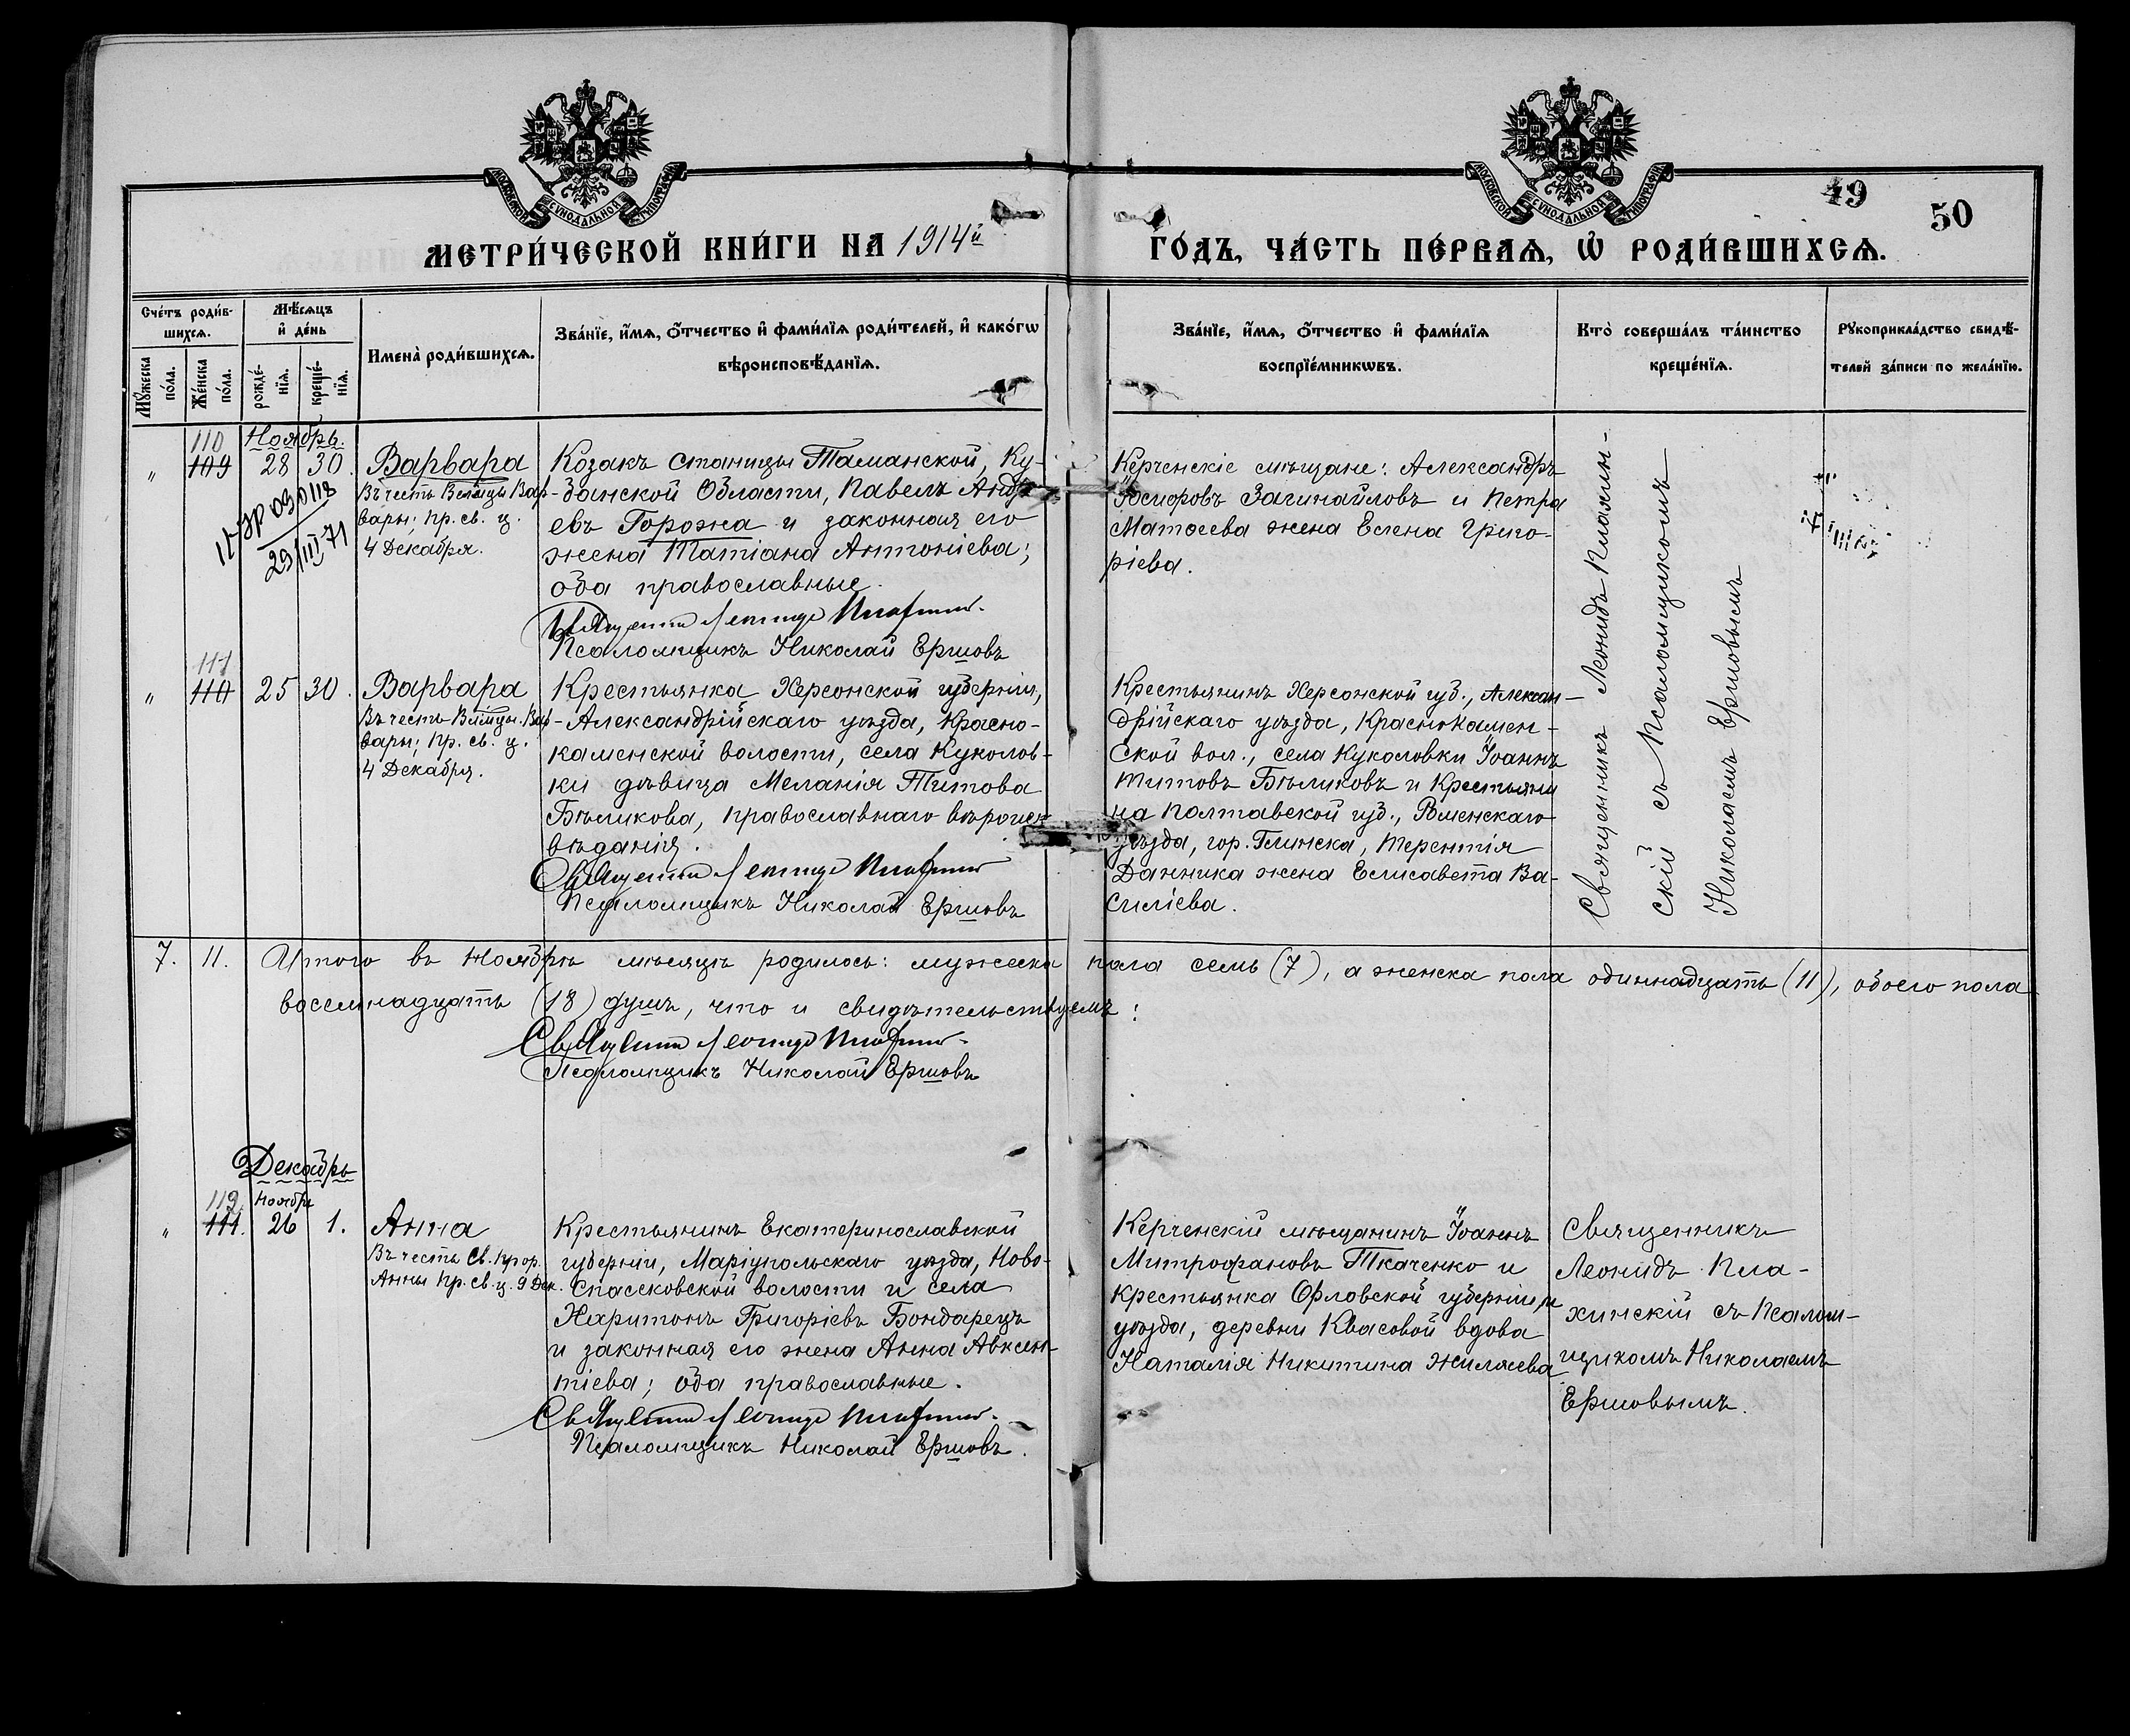 МОСКОВСКОЙ СѴНОДАЛЬНОЙ ТИПОГРАФІИ
МОСКОВСКОЙ СѴНОДАЛЬНОЙ ТИПОГРАФІИ
49
50
МЕТРИ́ЧЕСКОЙ КНИ́ГИ НА 1914й
ГО́ДЪ, ЧА́СТЬ ПЕ́РВАѦ, Ѡ҆ РОДИ́ВШИХСѦ.
Сче́тъ роди́в-
шихсѧ.
Мꙋ́жеска
по́ла.
Же́нска
по́ла.
Мѣ́сѧцъ
и҆ де́нь
рожде́-
нїѧ.
креще́-
нїѧ.
Имена̀ роди́вшихсѧ.
Зва́нїе, и҆́мѧ, ѻ҆́тчество и҆ фами́лїѧ роди́телей, и҆ како́гѡ
вѣроисповѣ́данїѧ.
Зва́нїе, и҆́мѧ, ѻ҆́тчество и҆ фами́лїѧ
воспрїе́мникѡвъ.
Кто̀ соверша́лъ та́инство
креще́нїѧ.
Рꙋкоприкла́дство свидѣ́-
телей за́писи по жела́нїю.
110
Ноябрь.
„ 109 28 30.
Варвара
Въ честь Вел͠мцы Вар-
вары; пр. св. ц.
4 Декабря.
29/III-71
Козакъ станицы Таманской, Ку-
банской Области, Павелъ Андре
евъ Горожа и законная его
жена Татіана Антоніева;
оба православные.
Священникъ Леонидъ
Псаломщикъ Николай Ершовъ
Керченскіе мѣщане: Александръ
Іосифовъ Загинайловъ и Петра
Матвеева жена Елена Григо-
ріева.
Священникъ Леонидъ Плахин-
скій съ Псаломщикомъ
Николаемъ Ершовымъ
111
„ 110 25 30.
Варвара
Въ честь Вел͠мцы. Вар-
вары; пр. св. ц.
4 Декабря.
Крестьянка Херсонской губерніи,
Александрійскаго уѣзда, Красно-
каменской волости, села Куколов-
ки дѣвица Меланія Титова
Бѣликова, православнаго вѣроиспо
вѣданія.
Священникъ Леонидъ
Псаломщикъ Николай Ершовъ
Крестьянинъ Херсонской губ., Алексан-
дрійскаго уѣзда, Краснокамен-
ской вол., села Куколовки Іоаннъ
Титовъ Бѣликовъ и Крестьяни
на Полтавской губ., Роменскаго
уѣзда, гор. Глинска, Терентія
Данника жена Елисавета Ва-
силіева.
7. 11. Итого въ Ноябрѣ мѣсяцѣ родилось: мужеска пола семь (7), а женска пола одиннадцать (11), обоего пола
восемнадцать (18) душъ, что и свидѣтельствуемъ:
Священникъ Леонидъ
Псаломщикъ Николай Ершовъ
Декабрь
112 Ноября
„ 111. 26 1.
Анна
Въ честь Св. Прор.
Анны пр. св. ц. 9 Дек.
Крестьянинъ Екатеринославской
губерніи, Маріупольскаго уѣзда, Ново-
спасековской волости и села
Харитонъ Григоріевъ Бондарецъ
и законная его жена Анна Авксен-
тіева; оба православные.
Священникъ Леонидъ
Псаломщикъ Николай Ершовъ.
Керченскій мѣщанинъ Іоаннъ
Митрофановъ Ткаченко и
крестьянка Орловской губерніи, и
уѣзда, деревни Квасовой вдова
Наталія Никитина Жиляева
Священникъ
Леонидъ Пла-
хинскій съ Псалом-
щикомъ Николаемъ
Ершовымъ.